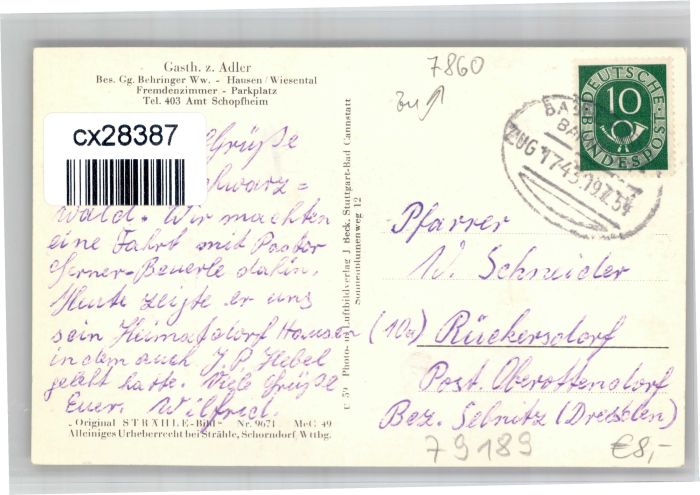 Gasth. z. Adler
Bes. Gg. Behringer Ww. - Hausen/Wiesental
Fremdenzimmer - Parkplatz
Tel. 403 Amt Schopfheim
cx28387
Grüße
hwarz=
wald. Wir machten
eine Fahrt mit Pastor
Gerner-Beuerle dahin.
Heute zeigte er uns
sein Heimatdorf Hausen
in dem auch J. P. Hebel
gelebt hatte. Viele Grüße
Euer. Wilfried.
"Original STRÄHLE-Bild" Nr. 9671 McG 49
Alleiniges Urheberrecht bei Strähle, Schorndorf, Wttbg.
U 59 Photo- u. Luftbildverlag J. Beck, Stuttgart-Bad Cannstatt
Sonnenblumenweg 12
7860
DEUTSCHE BUNDESPOST
10
BA
ZUG 1743 19.7.54
Pfarrer
W. Schneider
(10a) Rückersdorf
Post. Oberottendorf
Bez. Sebnitz (Dresden)
79189
€8,-